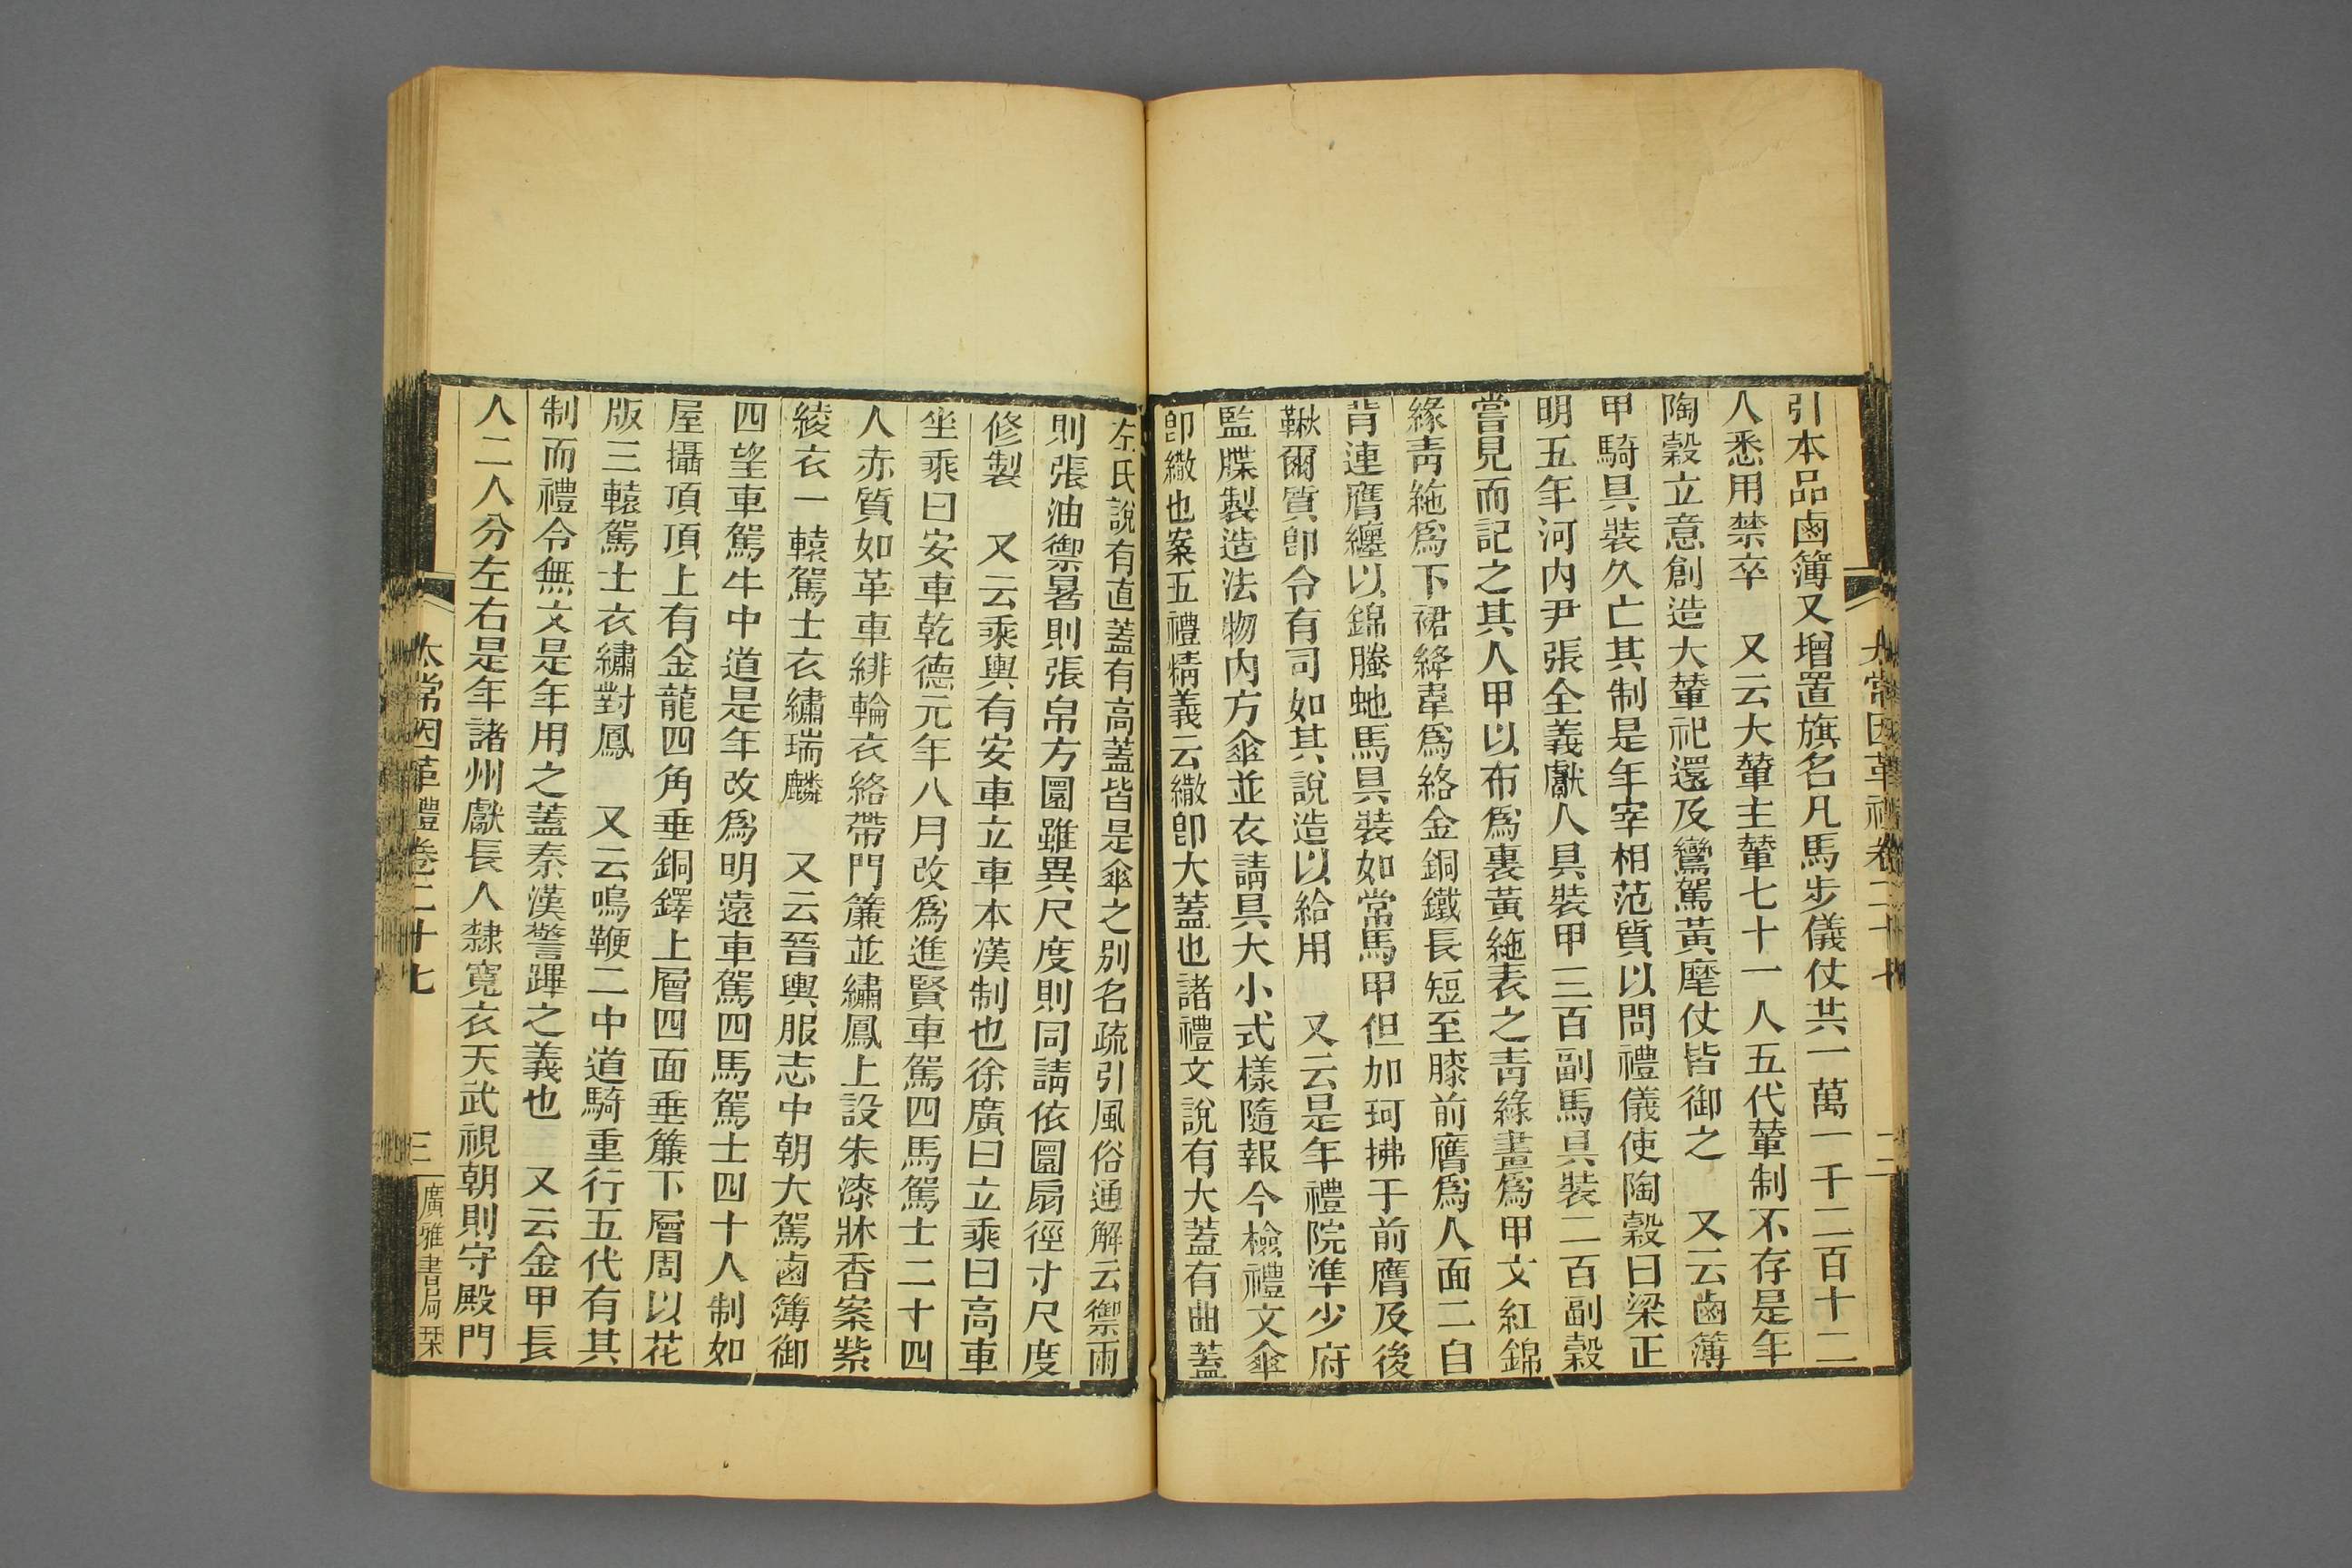 太常因革禮卷二十七
二
引本品鹵簿又增置旗名凡馬步儀仗共一萬一千二百十二
人悉用禁卒　又云大輦主輦七十一人五代輦制不存是年
陶穀立意創造大輦祀還及鸞駕黃麾仗皆御之　又云鹵簿
甲騎具裝久亡其制是年宰相范質以問禮儀使陶穀曰梁正
明五年河內尹張全義獻人具裝甲三百副馬具裝二百副穀
嘗見而記之其人甲以布爲裏黃絁表之靑綠畫爲甲文紅錦
緣靑絁爲下裙絳韋爲絡金銅鐵長短至膝前膺爲人面二自
背連膺纏以錦螣虵馬具裝如常馬甲但加珂拂于前膺及後
鞦爾質卽令有司如其說造以給用　又云是年禮院準少府
監牒製造法物內方傘並衣請具大小式樣隨報今檢禮文傘
卽繖也案五禮精義云繖卽大蓋也諸禮文說有大蓋有曲蓋
左氏說有直蓋有高蓋皆是傘之別名疏引風俗通解云禦雨
則張油禦暑則張帛方圓雖異尺度則同請依圓扇徑寸尺度
修製　又云乘輿有安車立車本漢制也徐廣曰立乘曰高車
坐乘曰安車乾德元年八月改爲進賢車駕四馬駕士二十四
人赤質如革車緋輪衣絡帶門簾並繡鳳上設朱漆牀香案紫
綾衣一轅駕士衣繡瑞麟　又云晉輿服志中朝大駕鹵簿御
四望車駕牛中道是年改爲明遠車駕四馬駕士四十人制如
屋攝頂頂上有金龍四角垂銅鐸上層四面垂簾下層周以花
版三轅駕士衣繡對鳳　又云鳴鞭二中道騎重行五代有其
制而禮令無文是年用之蓋秦漢警蹕之義也　又云金甲長
人二人分左右是年諸州獻長人隸寬衣天武視朝則守殿門
太常因革禮卷二十七
三
廣雅書局栞